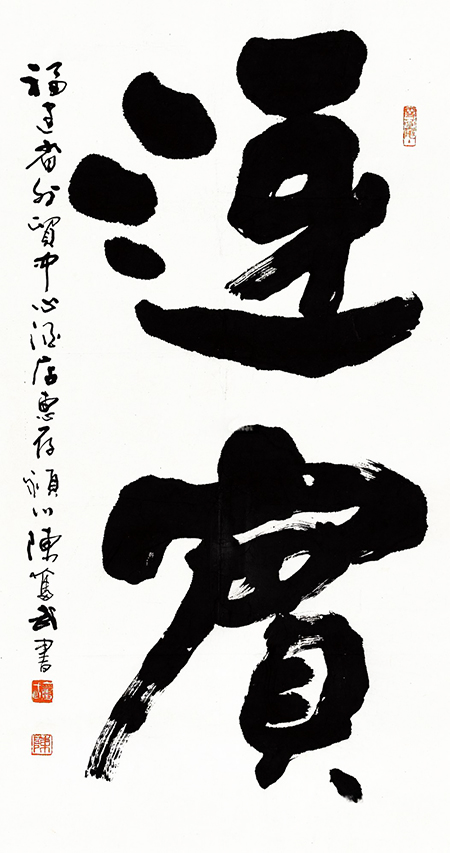 迎賓
福建省外貿中心酒店惠存潁川陳篤武書
陳